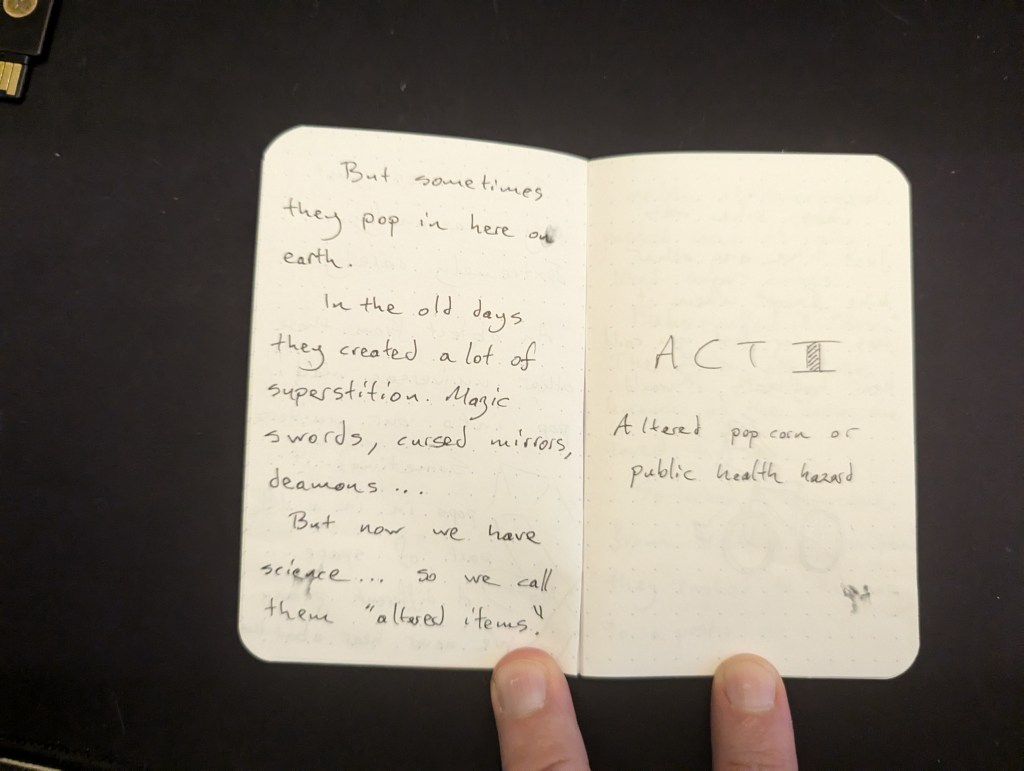 But sometimes
they pop in here on
earth.
In the old days
they created a lot of
superstition. Magic
swords, cursed mirrors,
deamons...
But now we have
science... so we call
them "altered items."
ACT II
Altered popcorn or
public health hazard